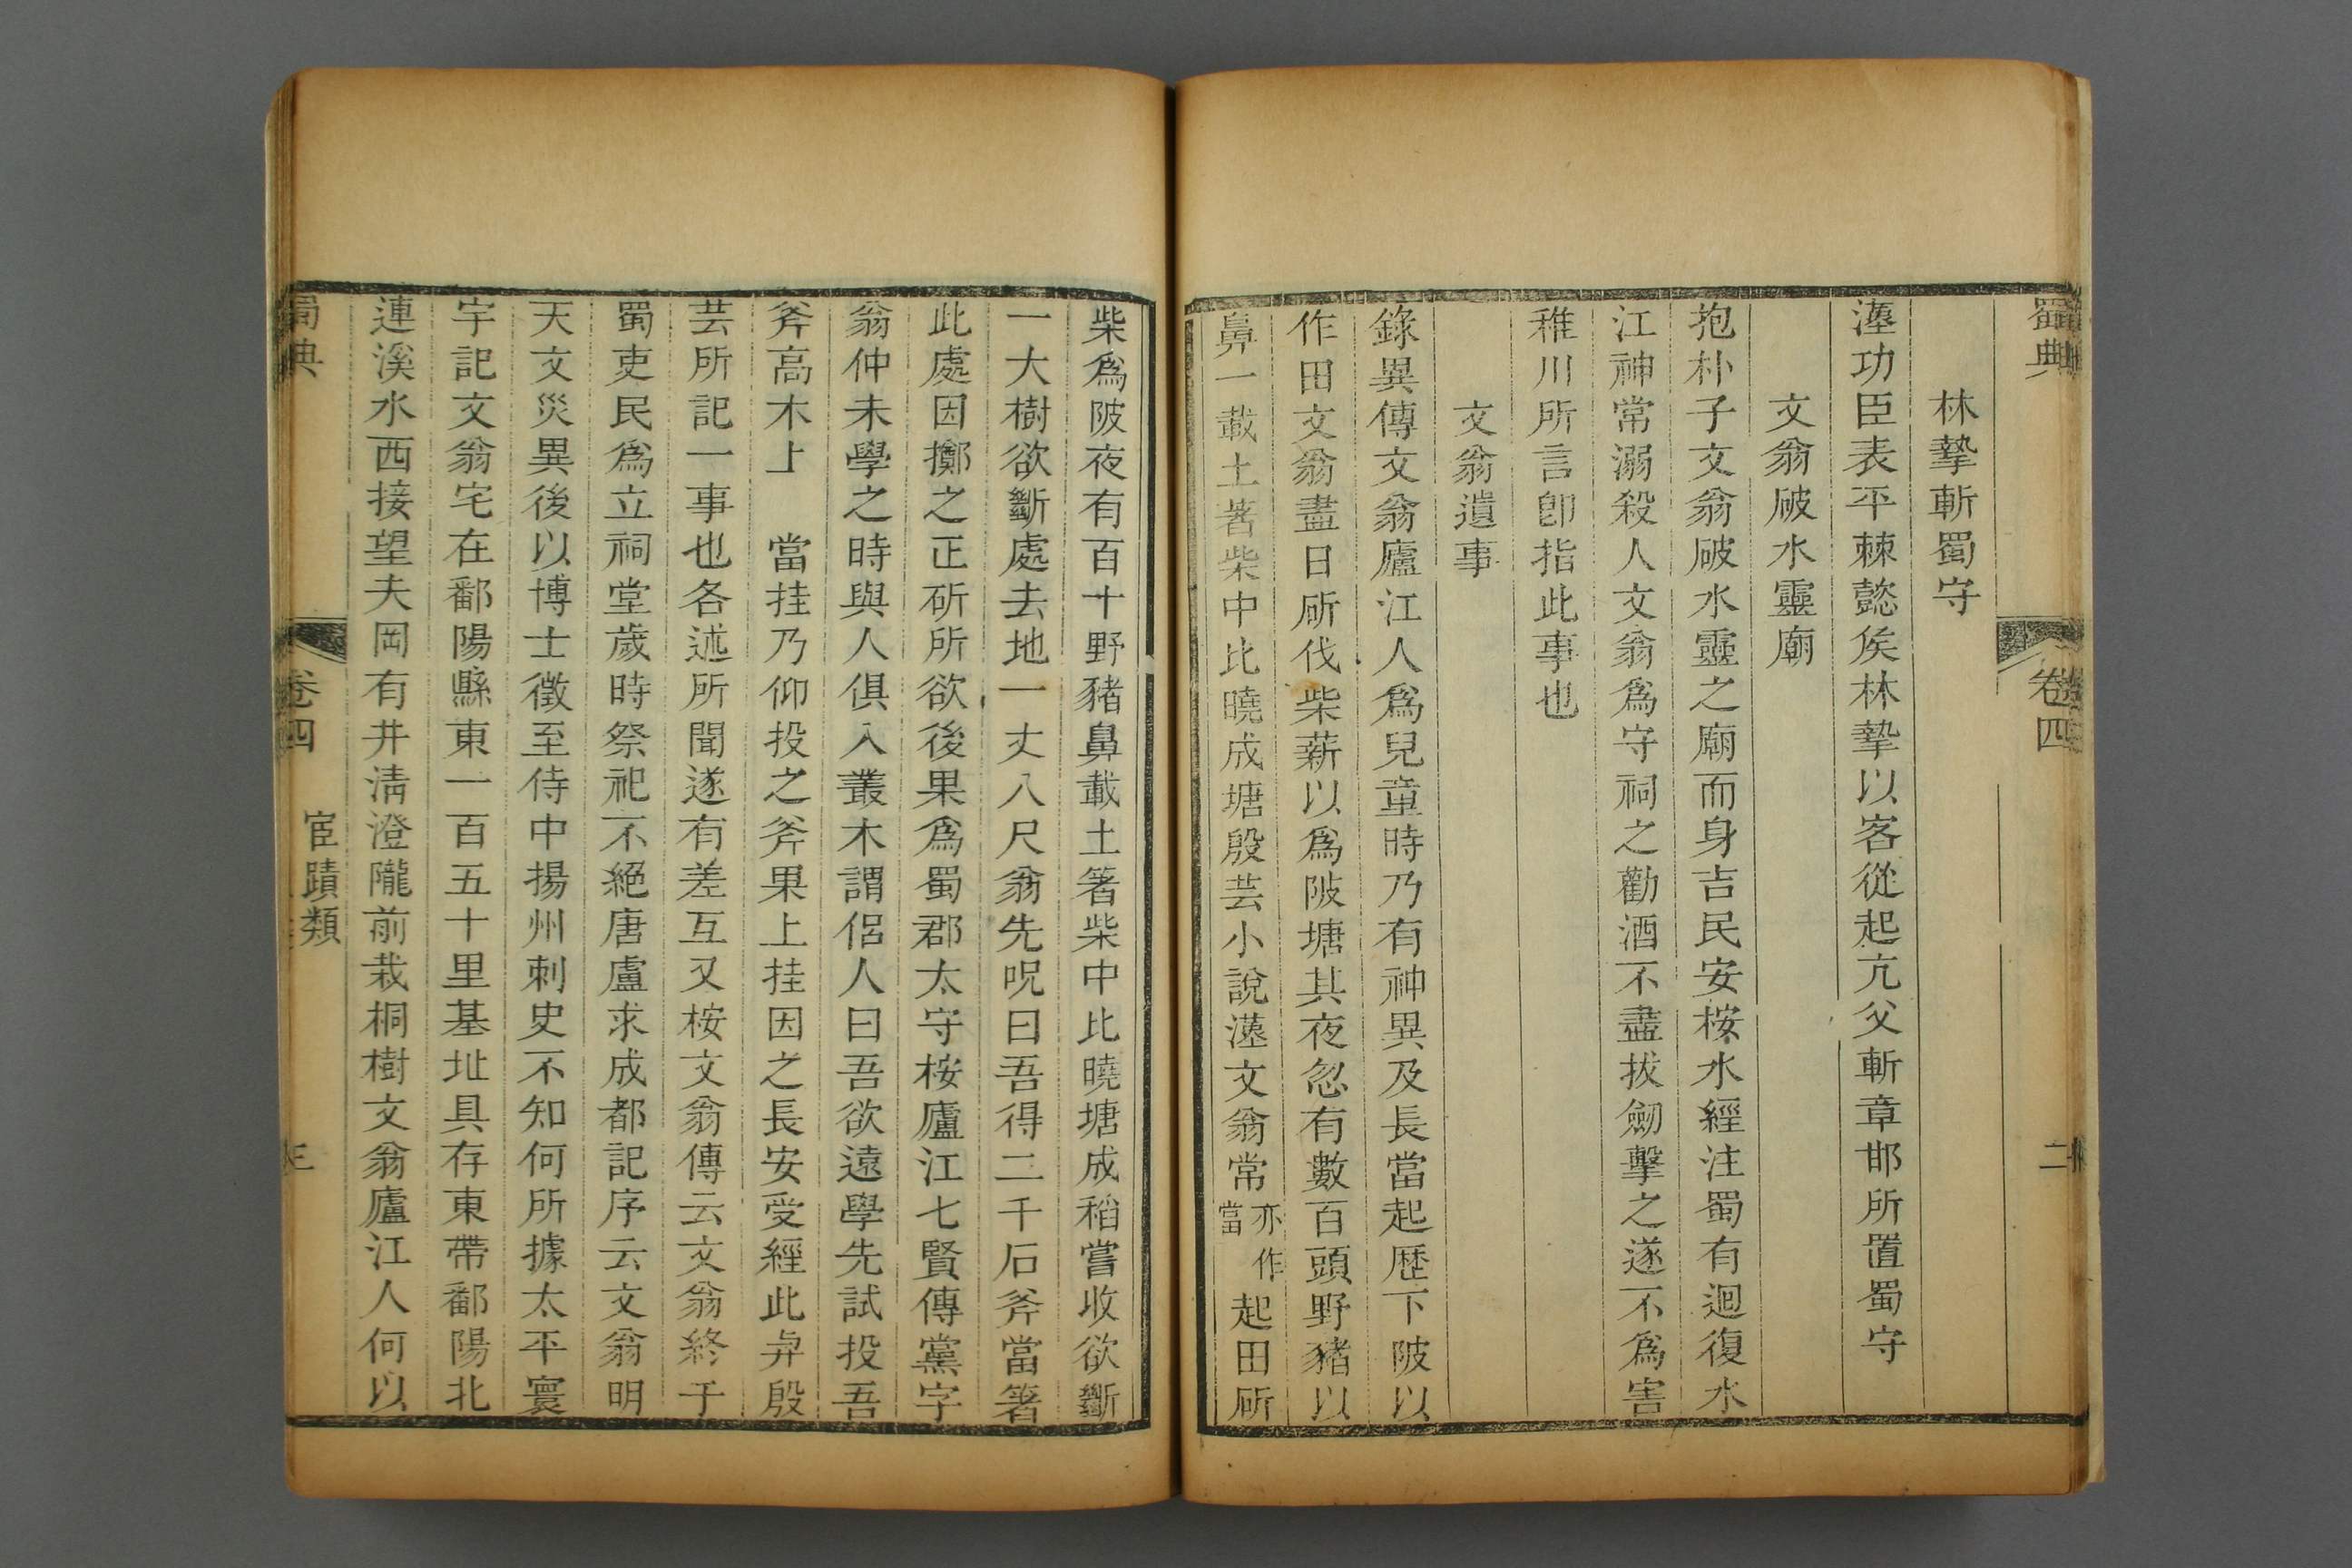 蜀典 卷四 二
林摯斬蜀守
漢功臣表平棘懿矦林摯以客從起亢父斬章邯所置蜀守
文翁破水靈廟
抱朴子文翁破水靈之廟而身吉民安桉水經注蜀有迴復水
江神常溺殺人文翁爲守祠之勸酒不盡拔劒擊之遂不爲害
稚川所言卽指此事也
文翁遺事
錄異傳文翁廬江人爲兒童時乃有神異及長當起歷下陂以
作田文翁盡日斫伐柴薪以爲陂塘其夜忽有數百頭野豬以
鼻一載土著柴中比曉成塘殷芸小說漢文翁常亦作當起田斫
柴爲陂夜有百十野豬鼻載土著柴中比曉塘成稻嘗收欲斷
一大樹欲斷處去地一丈八尺翁先呪曰吾得二千石斧當著
此處因擲之正斫所欲後果爲蜀郡太守桉廬江七賢傳黨字
翁仲未學之時與人俱入叢木謂侶人曰吾欲遠學先試投吾
斧高木上 當挂乃仰投之斧果上挂因之長安受經此弁殷
芸所記一事也各述所聞遂有差互又桉文翁傳云文翁終于
蜀吏民爲立祠堂歲時祭祀不絕唐盧求成都記序云文翁明
天文災異後以博士徵至侍中揚州刺史不知何所據太平寰
宇記文翁宅在鄱陽縣東一百五十里基址具存東帶鄱陽北
連溪水西接望夫岡有井淸澄隴前栽桐樹文翁廬江人何以
蜀典 卷四 宦蹟類 三